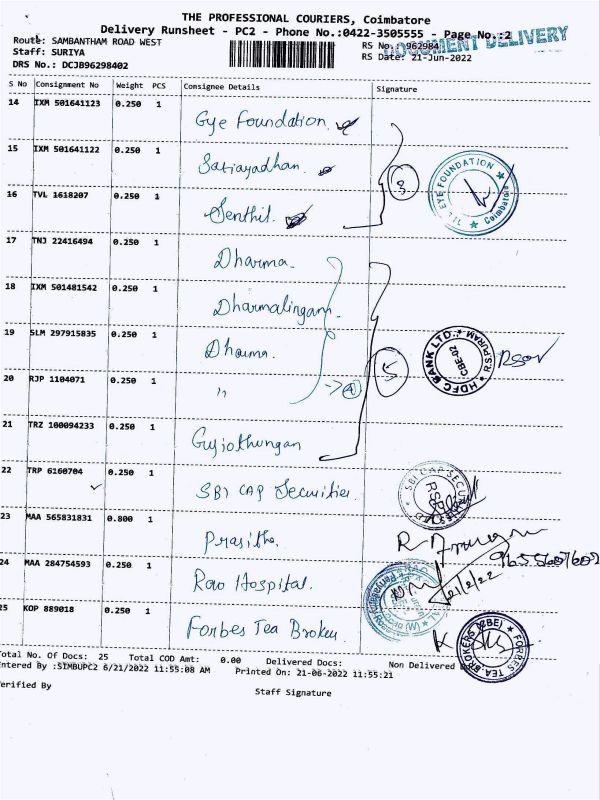 THE PROFESSIONAL COURIERS, Coimbatore
Delivery Runsheet - PC2 - Phone No.:0422-3505555 - Page No.:2
DOCUMENT DELIVERY
Route: SAMBANTHAM ROAD WEST
RS No.: 962984
Staff: SURIYA
RS Date: 21-Jun-2022
DRS No.: DCJB96298402
S No Consignment No Weight PCS Consignee Details Signature
14 IXM 501641123 0.250 1 Gye Foundation
15 IXM 501641122 0.250 1
3
EYE FOUNDATION Coimbatore
16 TVL 1618207 0.250 1 Senthil.
17 TNJ 22416494 0.250 1 Dharma.
18 IXM 501481542 0.250 1 Dharmalingam.
19 SLM 297915835 0.250 1 Dharma.
HDFC BANK LTD. R.S.PURAM CBE-02
5
20 RJP 1104071 0.250 1 " -> 4
21 TRZ 100094233 0.250 1
22 TRP 6160704 0.250 1 SBI CAP Securities.
SBI CAP SECURITIES RSP
23 MAA 565831831 0.800 1 Prasitha.
24 MAA 284754593 0.250 1 Rao Hospital.
25 KOP 889018 0.250 1 Forbes Tea Broker.
FORBES TEA BROKERS (CBE)
Total No. Of Docs: 25 Total COD Amt: 0.00 Delivered Docs: Non Delivered
ntered By :SIMBUPC2 6/21/2022 11:55:08 AM Printed On: 21-06-2022 11:55:21
erified By
Staff Signature